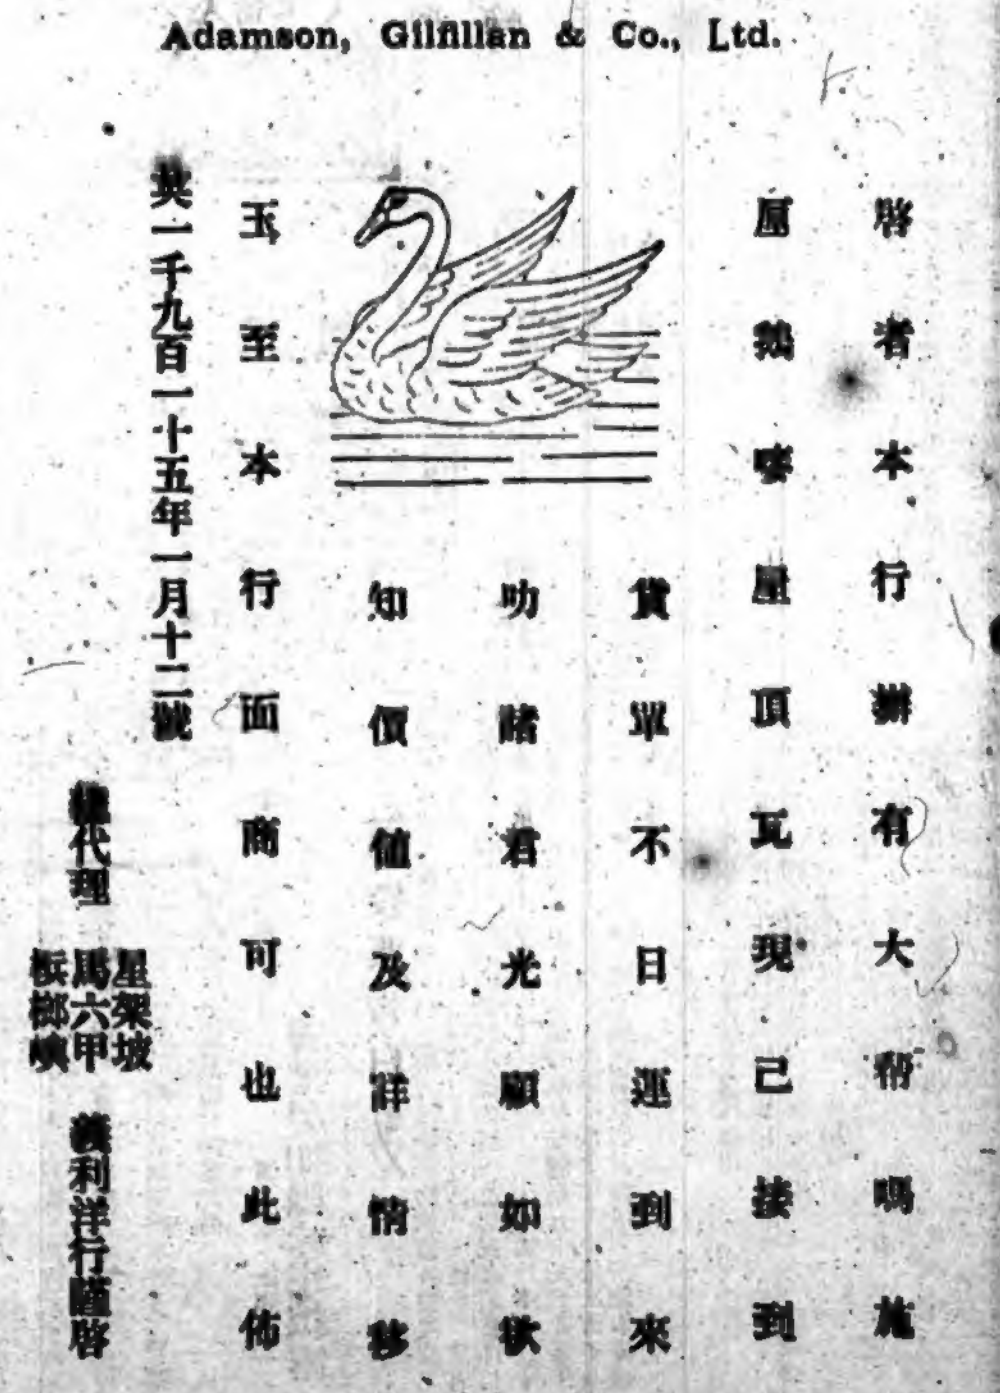 Adamson, Gilfillan & Co., Ltd.
啓者本行辦有大幫嗎施
厘熟嘜屋頂瓦現已接到
貨單不日運到來
叻諸君光顧如欲
知價値及詳情移
玉至本行面商可也此佈
英一千九百一十五年一月十二號
總代理
星架坡
馬六甲
梹榔嶼
義利洋行謹啓